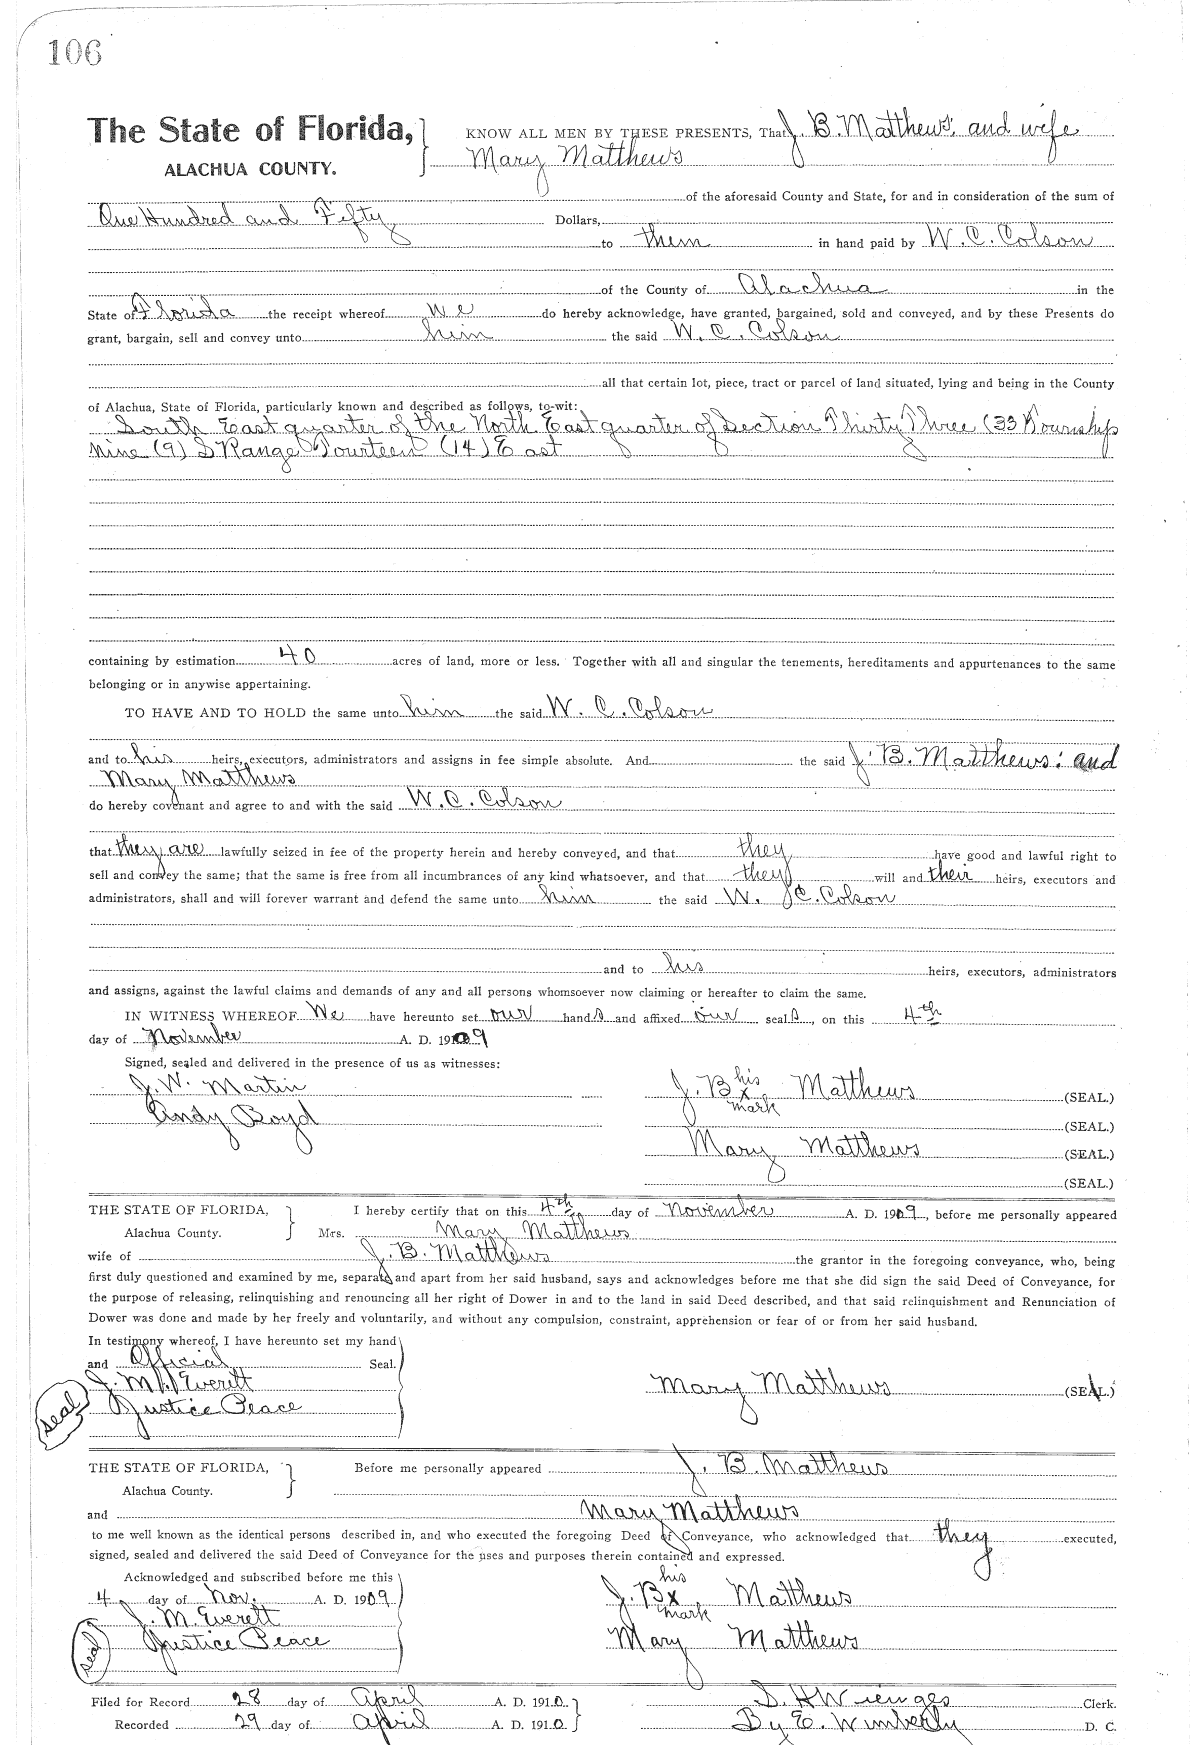 106
The State of Florida,
ALACHUA COUNTY.
KNOW ALL MEN BY THESE PRESENTS, That J. B. Matthews and wife
Mary Matthews
of the aforesaid County and State, for and in consideration of the sum of
One Hundred and Fifty Dollars,
to them in hand paid by W. C. Colson
of the County of Alachua in the
State of Florida the receipt whereof we do hereby acknowledge, have granted, bargained, sold and conveyed, and by these Presents do
grant, bargain, sell and convey unto him the said W. C. Colson
all that certain lot, piece, tract or parcel of land situated, lying and being in the County
of Alachua, State of Florida, particularly known and described as follows, to-wit:
South East quarter of the North East quarter of Section Thirty Three (33) Township
Nine (9) S Range Fourteen (14) East
containing by estimation 40 acres of land, more or less. Together with all and singular the tenements, hereditaments and appurtenances to the same
belonging or in anywise appertaining.
TO HAVE AND TO HOLD the same unto him the said W. C. Colson
and to his heirs, executors, administrators and assigns in fee simple absolute. And the said J. B. Matthews: and
Mary Matthews
do hereby covenant and agree to and with the said W. C. Colson
that they are lawfully seized in fee of the property herein and hereby conveyed, and that they have good and lawful right to
sell and convey the same; that the same is free from all incumbrances of any kind whatsoever, and that they will and their heirs, executors and
administrators, shall and will forever warrant and defend the same unto him the said W. C. Colson
and to his heirs, executors, administrators
and assigns, against the lawful claims and demands of any and all persons whomsoever now claiming or hereafter to claim the same.
IN WITNESS WHEREOF We have hereunto set our hands and affixed our seals, on this 4th
day of November A. D. 1909
Signed, sealed and delivered in the presence of us as witnesses:
J. W. Martin
Andy Boyd
J. B his x mark Matthews (SEAL.)
(SEAL.)
Mary Matthews (SEAL.)
(SEAL.)
THE STATE OF FLORIDA,
Alachua County.
I hereby certify that on this 4th day of November A. D. 1909, before me personally appeared
Mrs. Mary Matthews
wife of J. B. Matthews the grantor in the foregoing conveyance, who, being
first duly questioned and examined by me, separate and apart from her said husband, says and acknowledges before me that she did sign the said Deed of Conveyance, for
the purpose of releasing, relinquishing and renouncing all her right of Dower in and to the land in said Deed described, and that said relinquishment and Renunciation of
Dower was done and made by her freely and voluntarily, and without any compulsion, constraint, apprehension or fear of or from her said husband.
In testimony whereof, I have hereunto set my hand
and Official Seal.
J. M. Everett
Seal Justice Peace
Mary Matthews (SEAL.)
THE STATE OF FLORIDA,
Alachua County.
Before me personally appeared J. B. Matthews
and Mary Matthews
to me well known as the identical persons described in, and who executed the foregoing Deed of Conveyance, who acknowledged that they executed,
signed, sealed and delivered the said Deed of Conveyance for the uses and purposes therein contained and expressed.
Acknowledged and subscribed before me this
4 day of Nov. A. D. 1909
J. M. Everett
Seal Justice Peace
J. B his x mark Matthews
Mary Matthews
Filed for Record 28 day of April A. D. 1910.
Recorded 29 day of April A. D. 1910
S. H Wienges Clerk.
By E. Wimberly D. C.